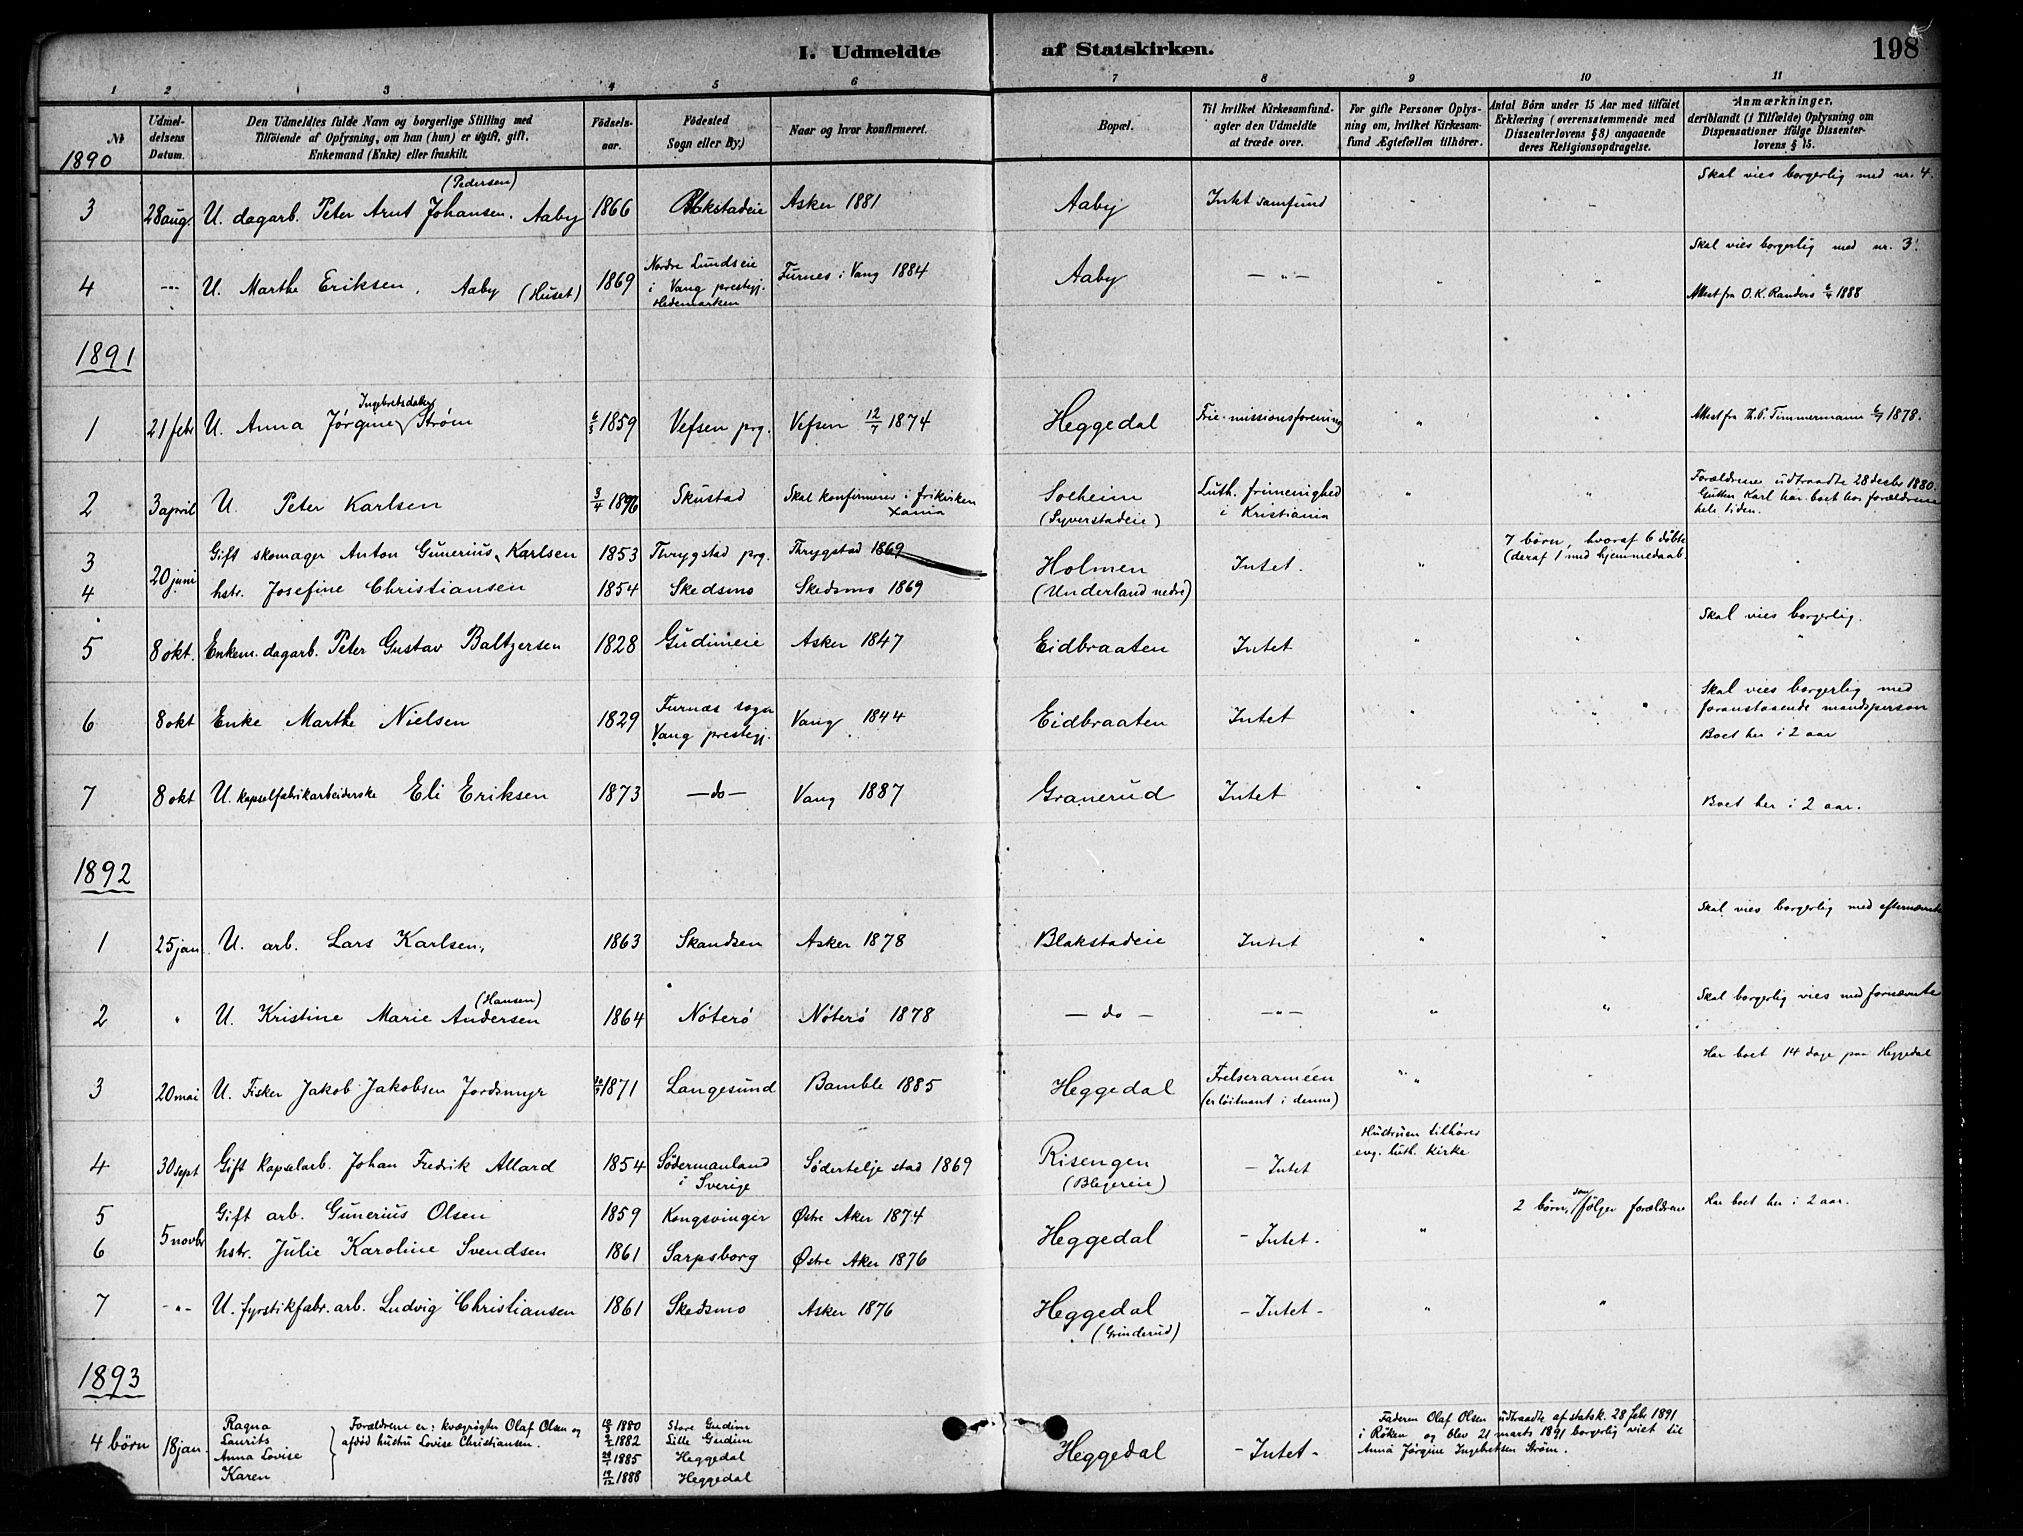 I. Udmeldte af Statskirken. 198
1 2 3 4 5 6 7 8 9 10 11
Nr.
Udmeldelsens Datum.
Den Udmeldtes fulde Navn og borgerlige Stilling med
Tilföiende af Oplysning, om han (hun) er ugift, gift,
Enkemand (Enke) eller fraskilt.
Födsels-aar.
Födested
Sogn eller By.)
Naar og hvor konfirmeret.
Bopæl.
Til hvilket Kirkesamfund-
agter den Udmeldte
at træde over.
For gifte Personer Oplys-
ning om, hvilket Kirkesam-
fund Ægtefællen tilhörer.
Antal Børn under 15 Aar med tilföiet
Erklæring (overensstemmende med
Dissenterlovens § 8) angaaende
deres Religionsopdragelse.
Anmærkninger,
deriblandt (i Tilfælde) Oplysning om
Dispensationer ifölge Dissenter-
lovens § 15.
1890
3 28 aug. U. dagarb. Peter Arnt Johansen. (Pedersen) Aaby 1866 Blakstadeie Asker 1881 Aaby Intet samfund " " Skal vies borgerlig med nr. 4.
4 -"- U. Marthe Eriksen. Aaby (Huset) 1869 Nordre Lundseie i Vang prestegj. Hedemarken Furnes i Vang 1884 Aaby -"- " " Skal vies borgerlig med nr. 3.
Attest fra O. K. Randers 6/4 1888
1891
1 21 febr U. Anna Jørgine Ingebretsdatter Strøm 6/3 1859 Vefsen prg. Vefsen 12/7 1874 Heggedal Frie missionsforening " " Attest fra Th. P. Timmermann 6/7 1878.
2 3 april U. Peter Karlsen 3/4 1876 Skustad Skal konfirmeres i frikirken Xania Solheim (Syverstadeie) Luth. frimenighed i Kristiania " " Forældrene udtraadte 28 decbr 1880.
Gutten Karl har boet hos forældrene
hele tiden.
3 20 juni Gift skomager Anton Gunerius Karlsen 1853 Thrygstad prg. Thrygstad 1869 Holmen (Underland nedre) Intet. " 7 børn, hvoraf 6 døbte
(deraf 1 med hjemmedaab "
4 hstr. Josefine Christiansen 1854 Skedsmo Skedsmo 1869
5 8 okt. Enkem. dagarb. Peter Gustav Baltzersen 1828 Gudimeie Asker 1847 Eidbraaten Intet " " Skal vies borgerlig.
6 8 okt Enke Marthe Nielsen 1829 Furnæs sogn Vang prestegj. Vang 1844 Eidbraaten Intet " " Skal vies borgerlig med
foranstaaende mandsperson
Boet her i 2 aar
7 8 okt U. kapselfabrikarbeiderske Eli Eriksen 1873 -do- Vang 1887 Granerud Intet " Boet her i 2 aar.
1892
1 25 jan U. arb. Lars Karlsen, 1863 Skandsen Asker 1878 Blakstadeie Intet " " Skal vies borgerlig med efternævnte
2 " U. Kristine Marie Andersen (Hansen) 1864 Nøterø Nøterø 1878 - do - -"- " " Skal borgerlig vies med fornævnte
3 20 mai U. Fisker Jakob Jakobsen Jordsmyr 1871 Langesund Bamble 1885 Heggedal Frelserarméen (er løitnant i denne) " " Har boet 14 dage paa Heggedal
4 30 sept Gift kapselarb. Johan Fredrik Allard 1854 Södermanland i Sverige Södertelje stad 1869 Risengen (Blejereie) - Intet Hustruen tilhører
evg. luth. kirke
5 5 novbr Gift arb. Gunerius Olsen 1859 Kongsvinger Østre Aker 1874 Heggedal - Intet. " 2 børn, som følger forældrene Har boet her i 2 aar.
6 hstr. Julie Karoline Svendsen 1861 Sarpsborg Østre Aker 1876
7 -"- U. fyrstikfabr. arb. Ludvig Christiansen 1861 Skedsmo Asker 1876 Heggedal (Grinderud) - Intet - " "
1893
4 børn 18 jan. Ragna 1880 Store Gudim
Laurits 1882 Lille Gudim
Anna Lovise 1885 Heggedal
Karen 19/12 1888 Heggedal
Forældrene er: kvægrøgter Olaf Olsen og
afdød hustru Lovise Christiansen.
Heggedal - Intet -
Faderen Olaf Olsen udtraadte af statsk. 28 febr 1891
i Røken og blev 21 marts 1891 borgerlig viet til
Anna Jørgine Ingebretsen Strøm.